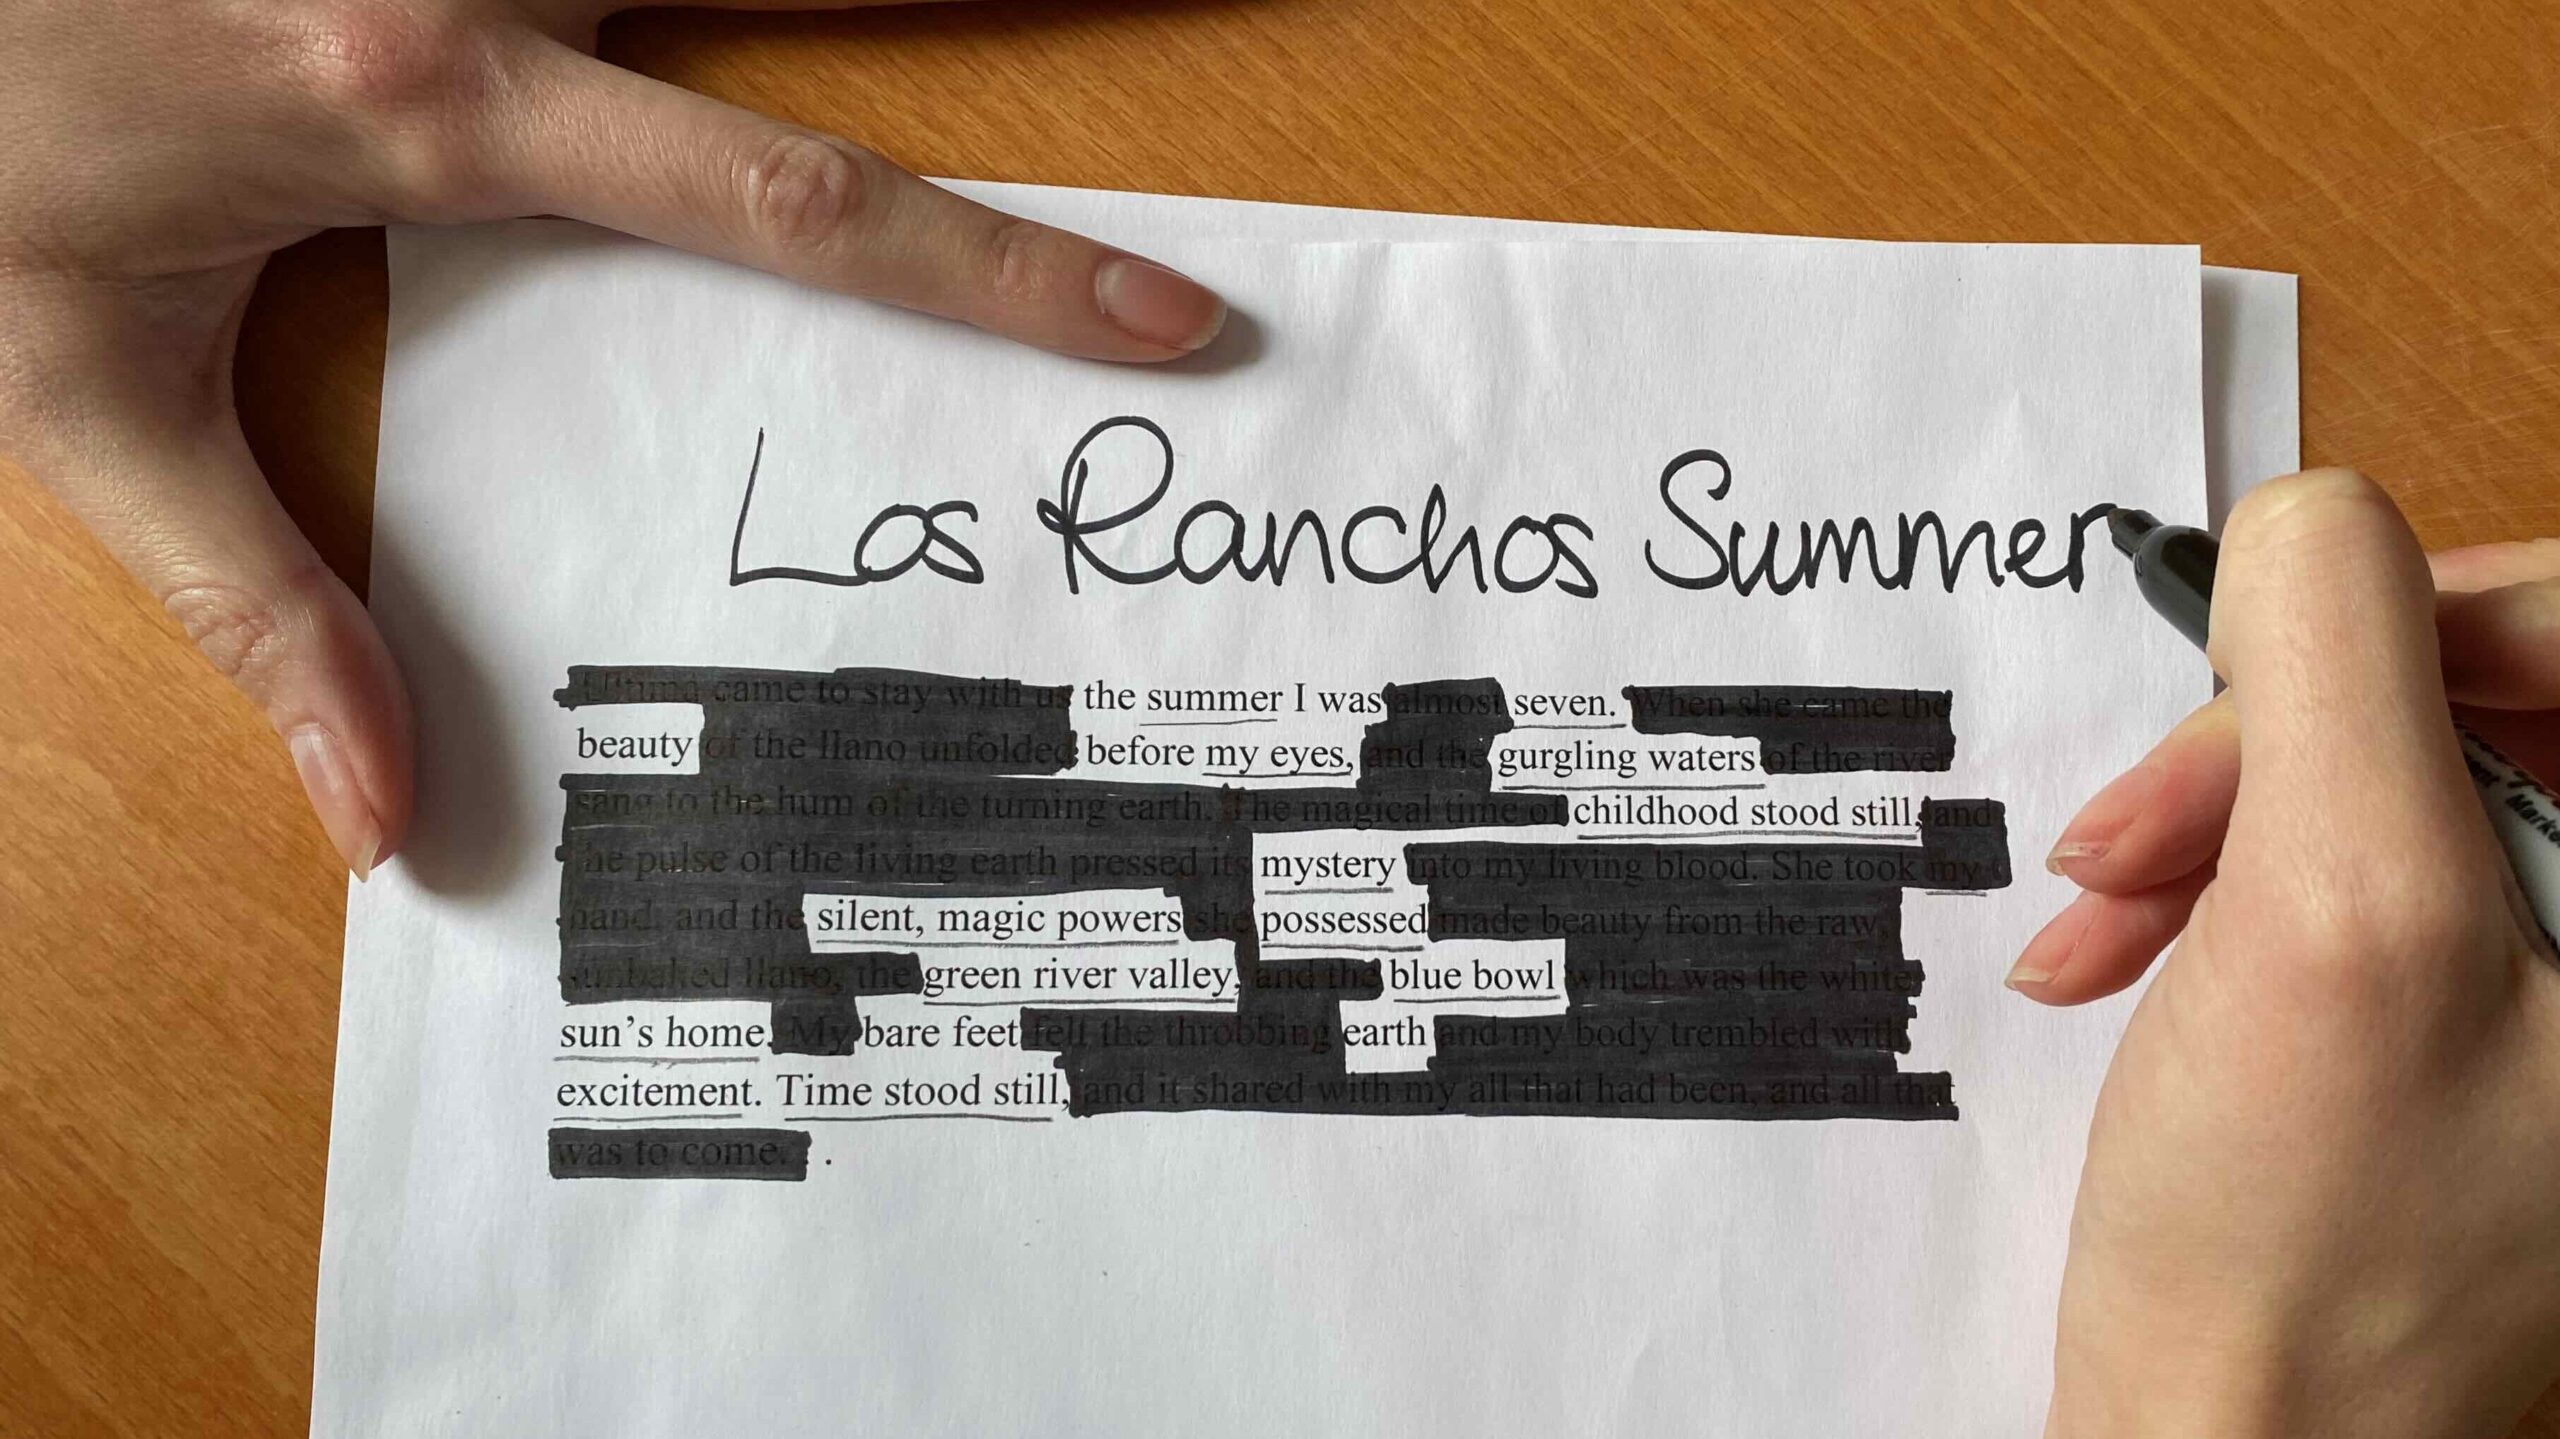 Los Ranchos Summer
Ultima came to stay with us the summer I was almost seven. When she came the
beauty of the llano unfolded before my eyes, and the gurgling waters of the river
sang to the hum of the turning earth. The magical time of childhood stood still, and
the pulse of the living earth pressed its mystery into my living blood. She took my
hand, and the silent, magic powers she possessed made beauty from the raw,
unbaked llano, the green river valley, and the blue bowl which was the white
sun’s home. My bare feet felt the throbbing earth and my body trembled with
excitement. Time stood still, and it shared with my all that had been, and all that
was to come. .
Marke